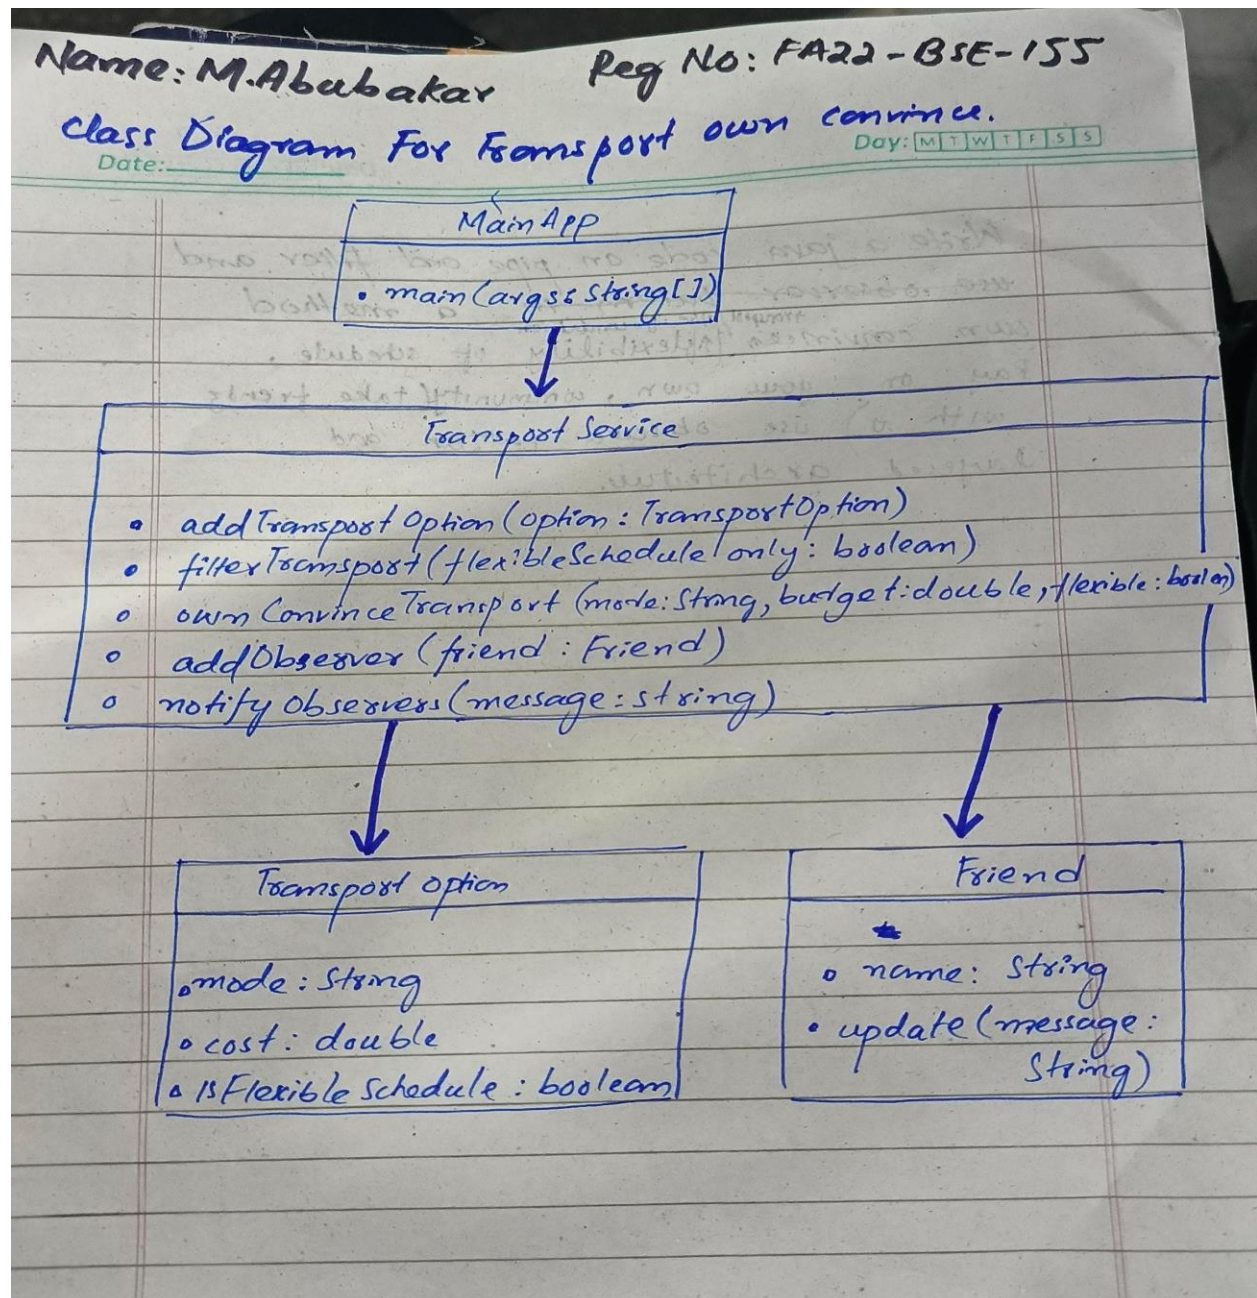 Name: M.Abubakar Reg No: FA22-BSE-155
Class Diagram For Transport own convince.
Date: Day: M T W T F S S
MainApp
• main(args: String[])
Transport Service
• addTransportOption(option: TransportOption)
• filterTransport(flexibleSchedule only: boolean)
• own ConvinceTransport (mode: String, budget: double, flexible: boolen)
• addObserver (friend : Friend)
• notify Observers (message: string)
Transport option
• mode : String
• cost : double
• isFlexible Schedule : boolean
Friend
• name: String
• update (message:
String)